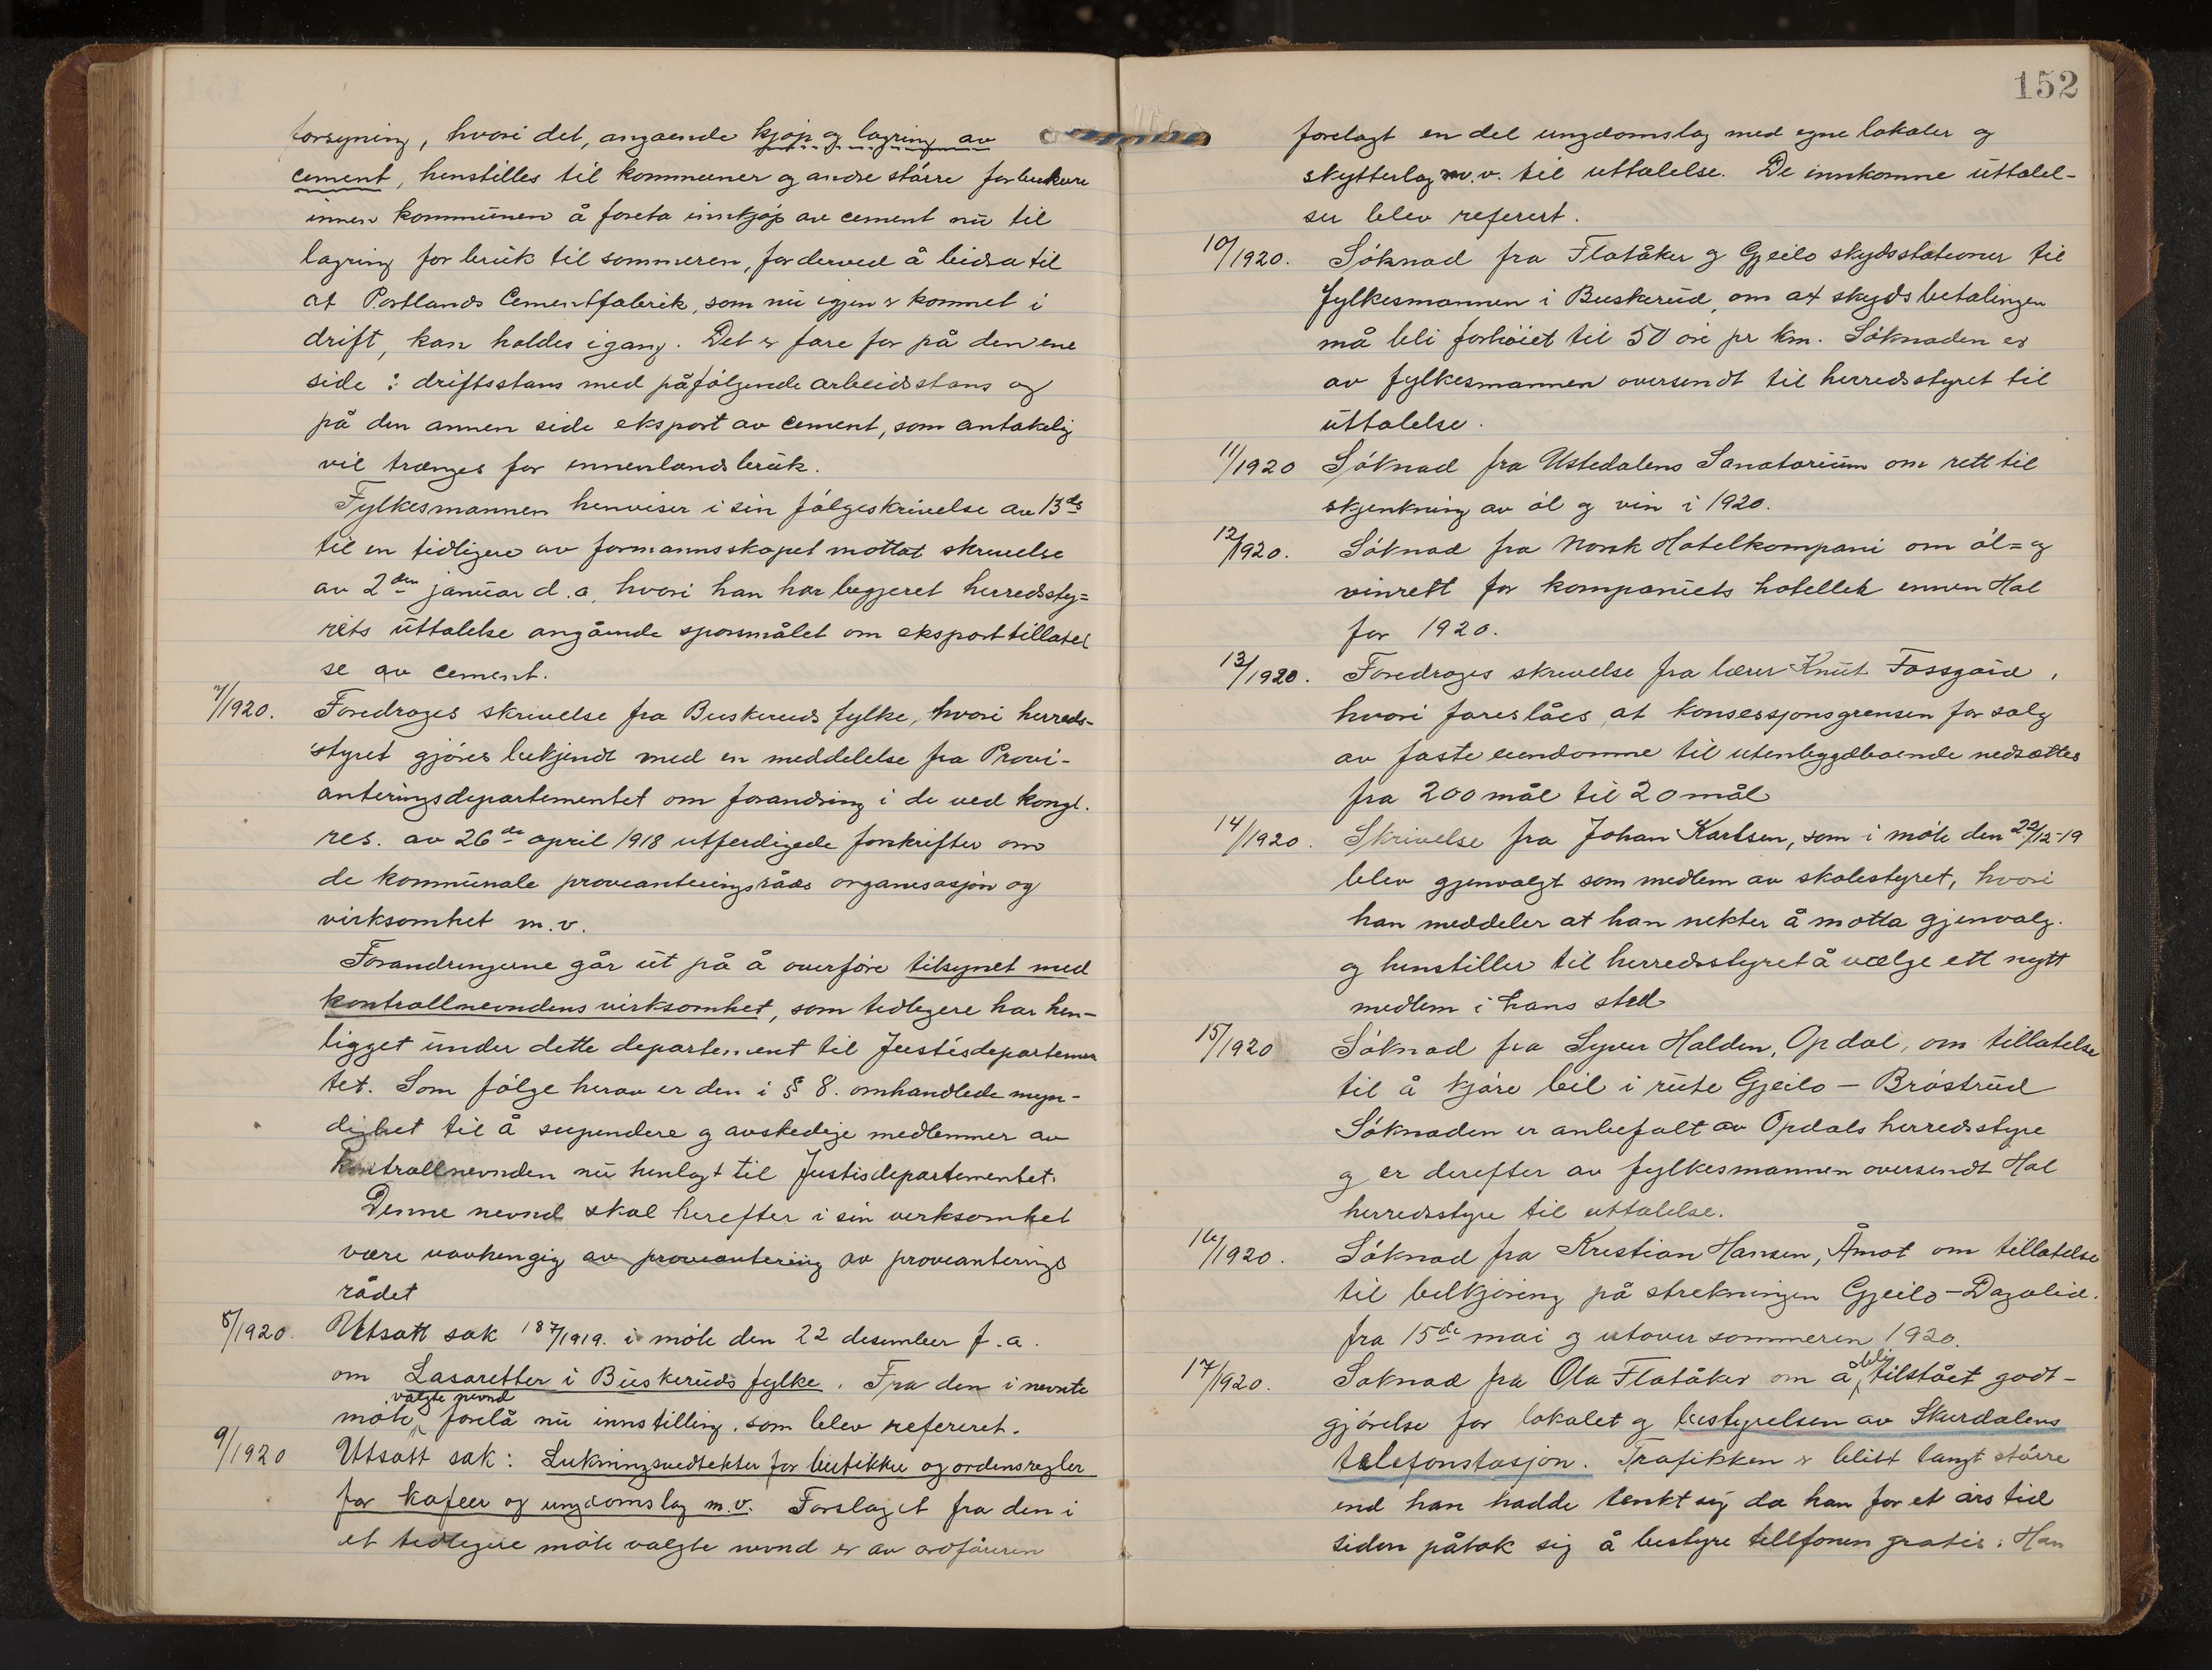 forsyning, hvori det, angaende kjøp og lagring av
cement, henstilles til kommuner og andre större forbrukere
innen kommunen å foreta innkjøp av cement nu til
lagring for bruk til sommeren, for derved å bidra til
at Portlands Cementfabrik, som nu igjen er kommet i
drift, kan holdes igang. Det er fare for på den ene
side : driftsstans med påfölgende arbeidsstans og
på den annen side eksport av cement, som antakelig
vil trænges for innenlandsbruk.
Fylkesmannen henviser i sin fölgeskrivelse av 13de
til en tidligere av formannsskapet mottat skrivelse
av 2den januar d.a. hvori han har begjeret herredssty=
rets uttalelse angående sporsmålet om eksporttillatel
se av cement.
7/1920. Foredroges skrivelse fra Buskeruds fylke, hvori herreds-
styret gjöres bekjendt med en meddelelse fra Provi-
anteringsdepartementet om forandring i de ved kongl.
res. av 26de april 1918 utferdigede forskrifter om
de kommunale provianteringsråds organisasjon og
virksomhet m.v.
Forandringerne går ut på å overföre tilsynet med
kontrollnevndens virksomhet, som tidligere har hen-
ligget under dette departement til Justisdepartemen
tet. Som fölge herav er den i § 8. omhandlede myn-
dighet til å supendere og avskedige medlemmer av
kontrollnevnden nu henlagt til Justisdepartementet.
Denne nevnd skal herefter i sin virksomhet
være uavhengig av proviantering av provianterings
rådet
8/1920. Utsatt sak 187/1919. i möte den 22 desember f.a.
om Lasaretter i Buskeruds fylke. Fra den i nevnte
valgte nevnd
möte forelå nu innstilling, som blev refereret.
9/1920 Utsatt sak: Lukningsvedtekter for butikker og ordensregler
for kafeer og ungdomslag m.v. Forslaget fra den i
et tidligere möte valgte nevnd er av ordföreren
152
forelagt en del ungdomslag med egne lokaler og
skytterlag m.v. til uttalelse. De innkomne uttalel-
ser blev referert.
10/1920. Söknad fra Flatåker og Gjeilo skydsstationer til
fylkesmannen i Buskerud, om at skydsbetalingen
må bli forhöiet til 50 öre pr km. Söknaden er
av fylkesmannen oversendt til herredsstyret til
uttalelse.
11/1920 Söknad fra Ustedalens Sanatorium om rett til
skjenkning av öl og vin i 1920.
12/1920. Söknad fra Norsk Hotelkompani om öl= og
vinrett for kompaniets hoteller innen Hol
for 1920.
13/1920. Foredroges skrivelse fra lærer Knut Fossgård,
hvori foreslåes at konsessjonsgrensen for salg
av faste eiendomme til utenbygdboende nedsættes
fra 200 mål til 20 mål
14/1920. Skrivelse fra Johan Karlsen, som i möte den 22/12-19
blev gjenvalgt som medlem av skolestyret, hvori
han meddeler at han nekter å motta gjenvalg.
og henstiller til herredsstyret å vælge ett nytt
medlem i hans sted
15/1920 Söknad fra Syver Halden, Opdal, om tillatelse
til å kjöre bil i rute Gjeilo – Bröstrud
Söknaden er anbefalt av Opdals herredsstyre
og er derefter av fylkesmannen oversendt Hol
herredsstyre til uttalelse.
16/1920. Söknad fra Kristian Hansen, Åmot om tillatelse
til bilkjöring på strekningen Gjeilo – Dagalid.
fra 15de mai og utover sommeren 1920.
17/1920. Söknad fra Ola Flatåker om å bli tilstået godt-
gjörelse for lokalet og bestyrelsen av Skurdalens
telefonstasjon. Trafikken er blitt langt större
end han hadde tenkt sig da han for et års tid
siden påtok sig å bestyre tellfonen gratis. Han